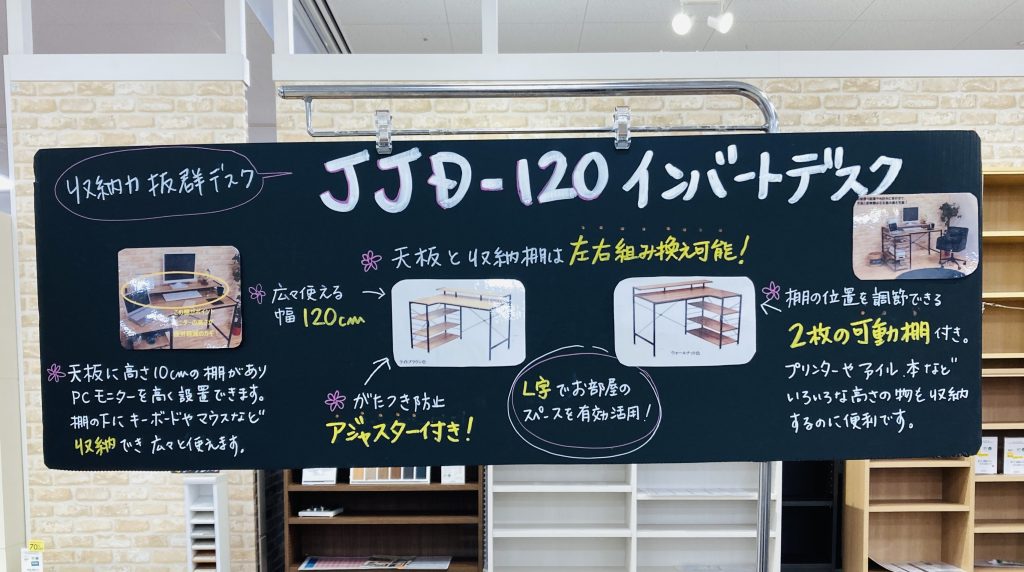 収納力抜群デスク
JJD-120 インバートデスク
天板と収納棚は左右組み換え可能!
広々使える
幅120cm
天板に高さ10cmの棚があり
PCモニターを高く設置できます。
棚の下にキーボードやマウスなど
収納でき広々と使えます。
がたつき防止
アジャスター付き!
ライトブラウン色
ウォールナット色
L字でお部屋の
スペースを有効活用!
棚の位置を調節できる
2枚の可動棚付き。
プリンターやファイル、本など
いろいろな高さの物も収納
するのに便利です。